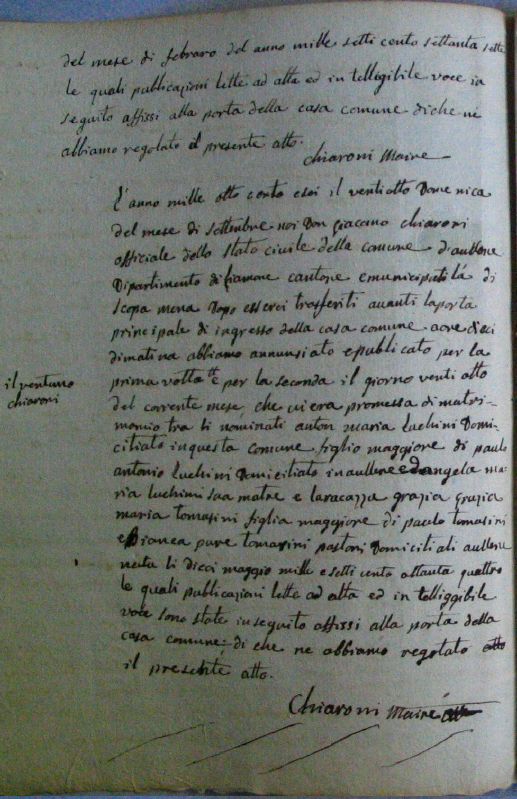 del mese di febraro del anno mille setti cento settanta sette
le quali publicazioni lette ad alta ed in telligibile voce in
seguito affissi alla porta della casa comune di che ne
abbiamo regolato il presente atto.
Chiaroni Maire
L'anno mille otto cento e sei il ventiotto Domenica
del mese di settembre noi Don giacomo chiaroni
officiale dello stato civile della comune d'aullene
Dipartimento di liamone cantone e municipalità di
scopa mena Dopo esserci trasferiti avanti la porta
principale di ingresso della casa comune a ore dieci
di matina abbiamo annunsiato e publicato per la
il ventuno
chiaroni
prima volta e per la seconda il giorno venti otto
del corrente mese, che vi era promessa di matri-
monio tra li nominati anton maria Luchini Domi-
ciliato in questa comune figlio maggiore di paulo
antonio Luchini Domiciliato in aullene ed angela ma-
ria luchini sua matre e la racazza grazia grazia
maria tomasini figlia maggiore di paulo tomasini
e Bianca pure tomasini pastori Domiciliati aullene
nata li dieci maggio mille e setti cento ottanta quattro
le quali publicazioni lette ad alta ed in telliggibile
voce sono state in seguito affissi alla porta della
casa comune; di che ne abbiamo regolato atto
il presente atto.
Chiaroni Maire